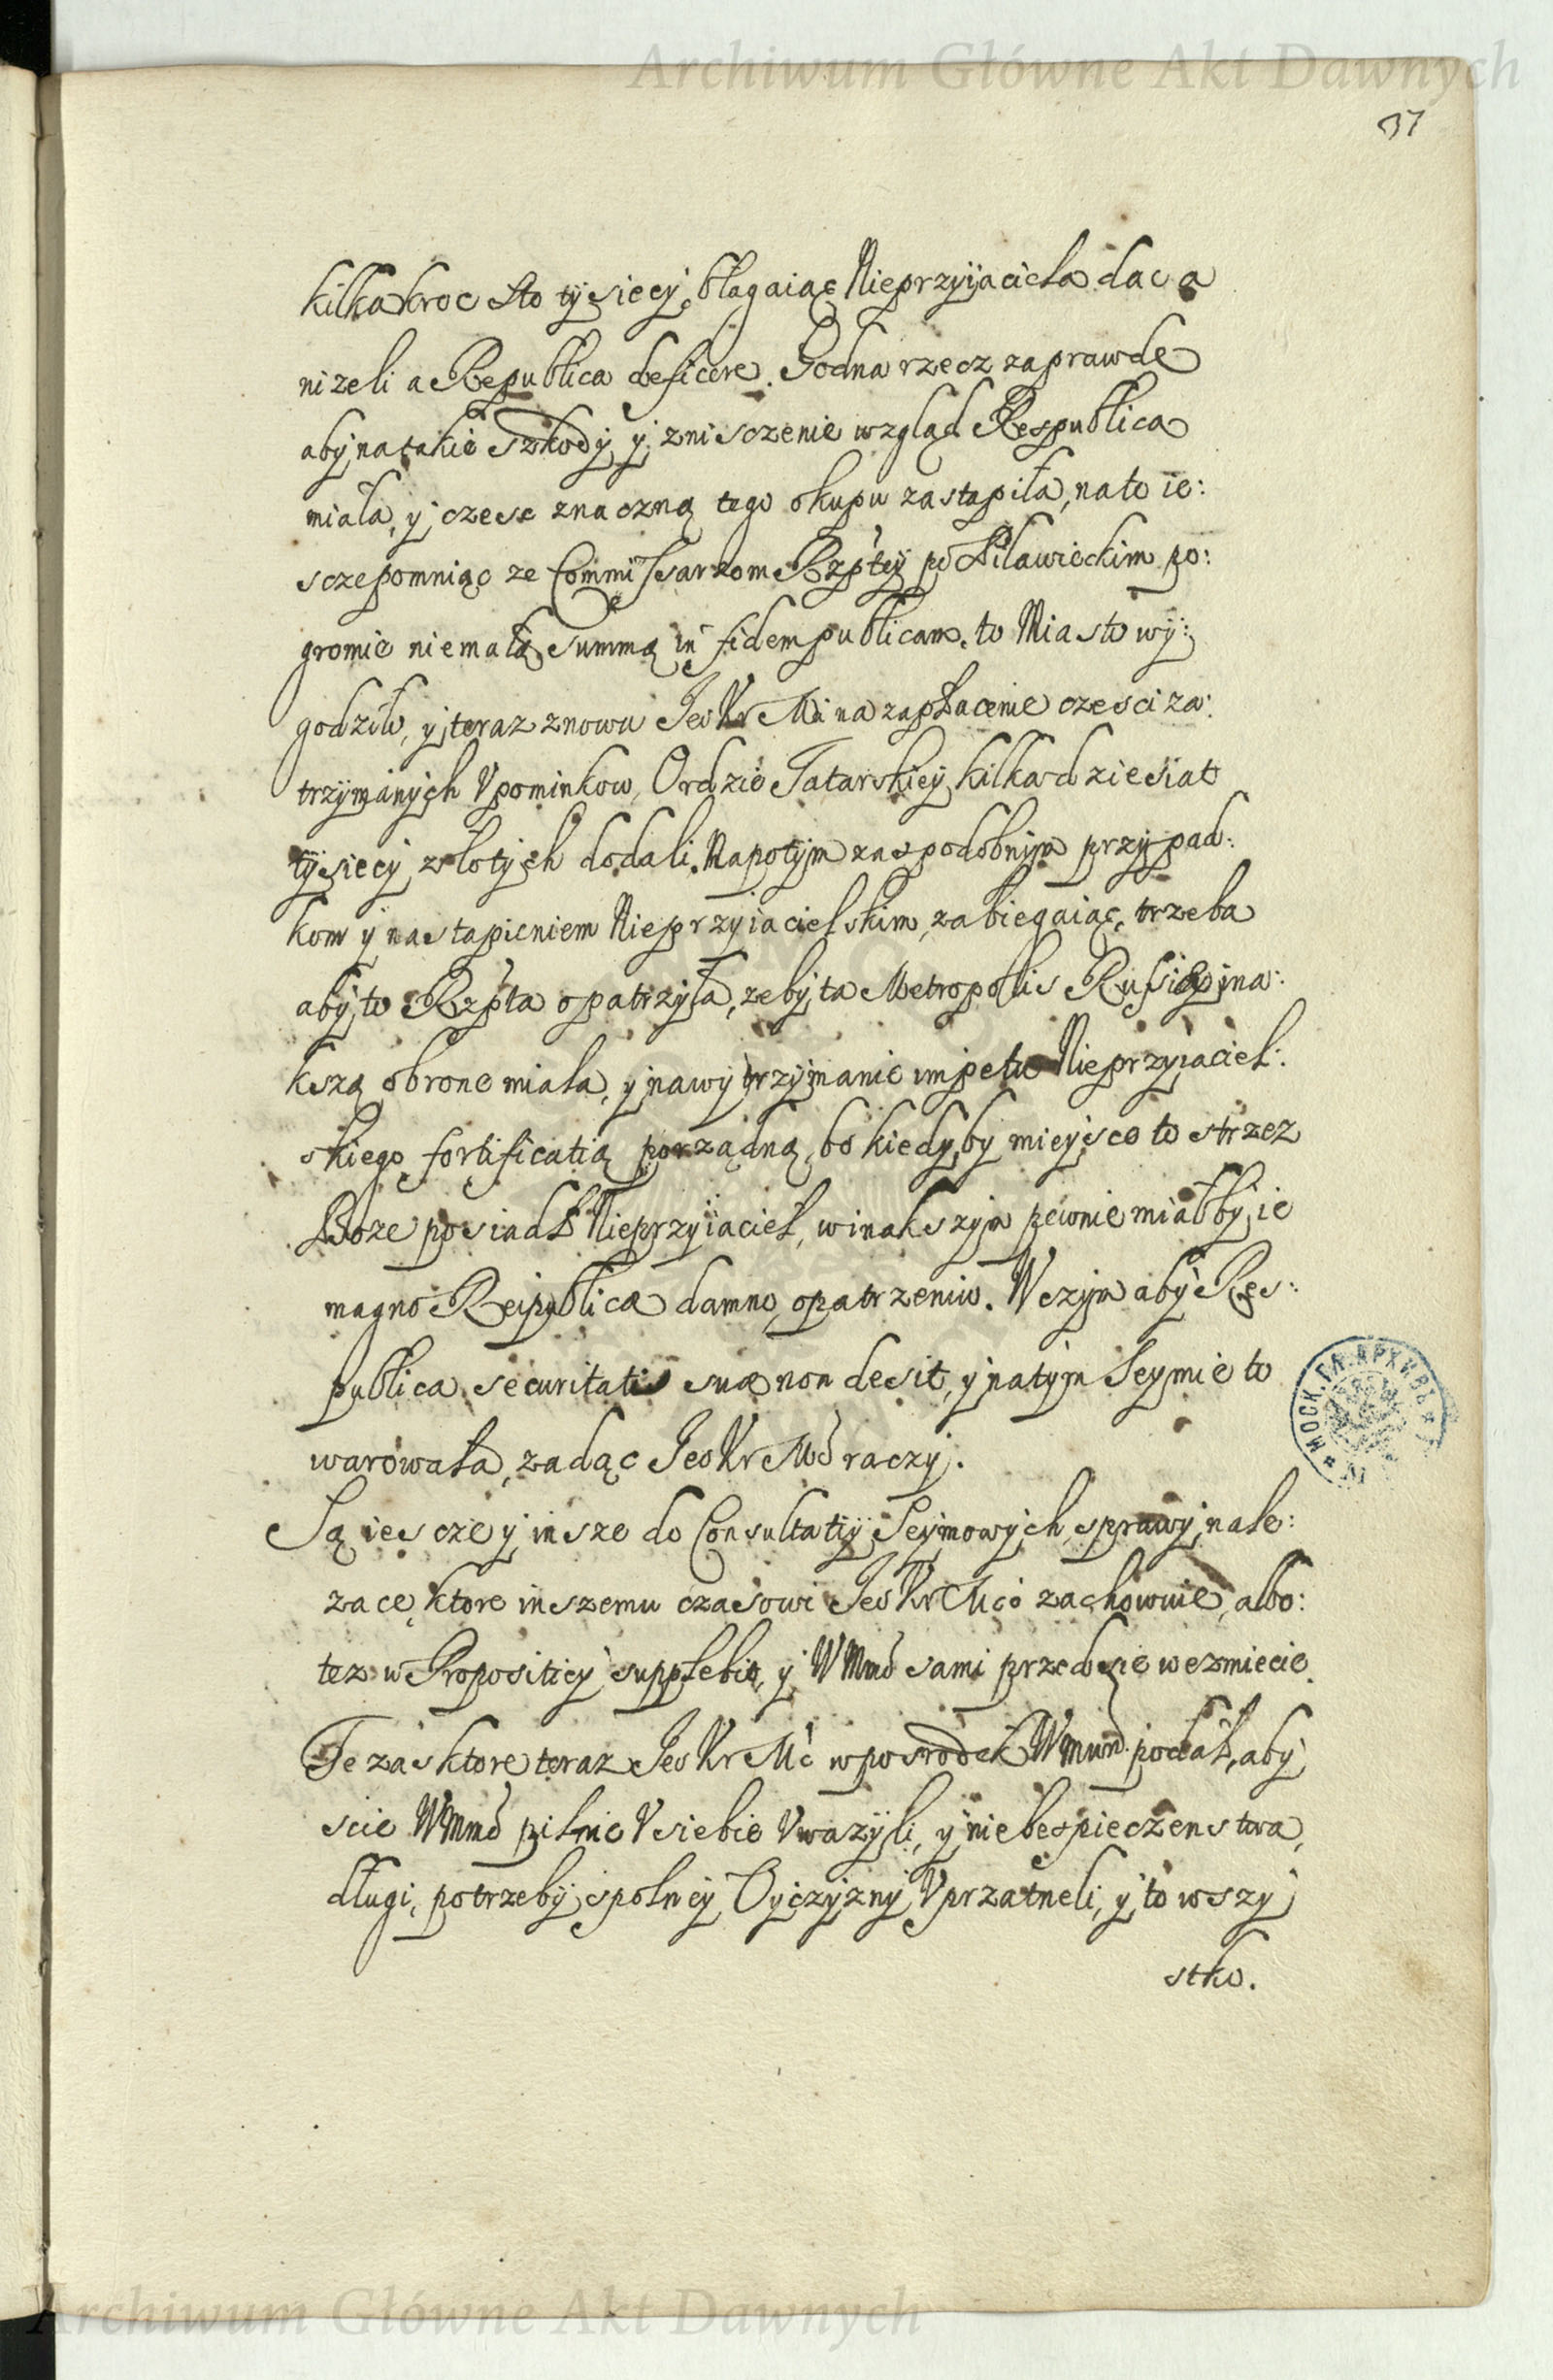 Archiwum Główne Akt Dawnych
37
kilkakroc sto tysiecy, błagaiąc Nieprzyiaciela dac a
nizeli a Republica deficere. Godna rzecz zaprawde
aby na takie szkody y znisczenie wzgląd Respublica
miała, y czesc znaczną tego okupu zastąpiła, na to ie:
scze pomniąc ze Commissarzom Rzptey po Pilawieckim po:
gromie niemałą summą in fidem publicam to Miasto wy:
godziło, y teraz znowu Jeo Kr Mci na zapłacenie czesci za:
trzymanych Vpominkow Ordzie Tatarskiey kilkadziesiat
tysiecy złotych dodali. Napotym zas podobnym przypad:
kom y nastapieniem Nieprzyiacielskim zabiegaiąc, trzeba
aby to Rzpta opatrzyła, zeby ta Metropolis Russiæ jna:
kszą obrone miała, y na wytrzymanie impetu Nieprzyiaciel:
skiego fortificatią porządną, bo kiedy by mieysce to strzez
Boze posiadł Nieprzyiaciel, w inakszym pewnie miałby ie
magno Reipublicæ damno, opatrzeniu. W czym aby Res:
publica securitati suæ non desit, y na tym Seymie to
warowała, ządąc Jeo Kr Mć raczy.
Są iescze y insze do Consultatiy Seymowych sprawy nale:
zące, ktore inszemu czasowi Jeo Kr Mć zachowuie, albo:
tez w Propositiey supplebit, y W Mmć sami przed sie wezmiecie.
Te zas ktore teraz Jeo Kr Mć w posrodek podał, aby
scie W Mmć pilnie V siebie Vwazyli, y niebespieczenstwa,
długi, potrzeby spolney Oyczyzny Vprzatneli, y to wszy
stko.
МОСК. ГЛ. АРХИВЪ
Archiwum Główne Akt Dawnych